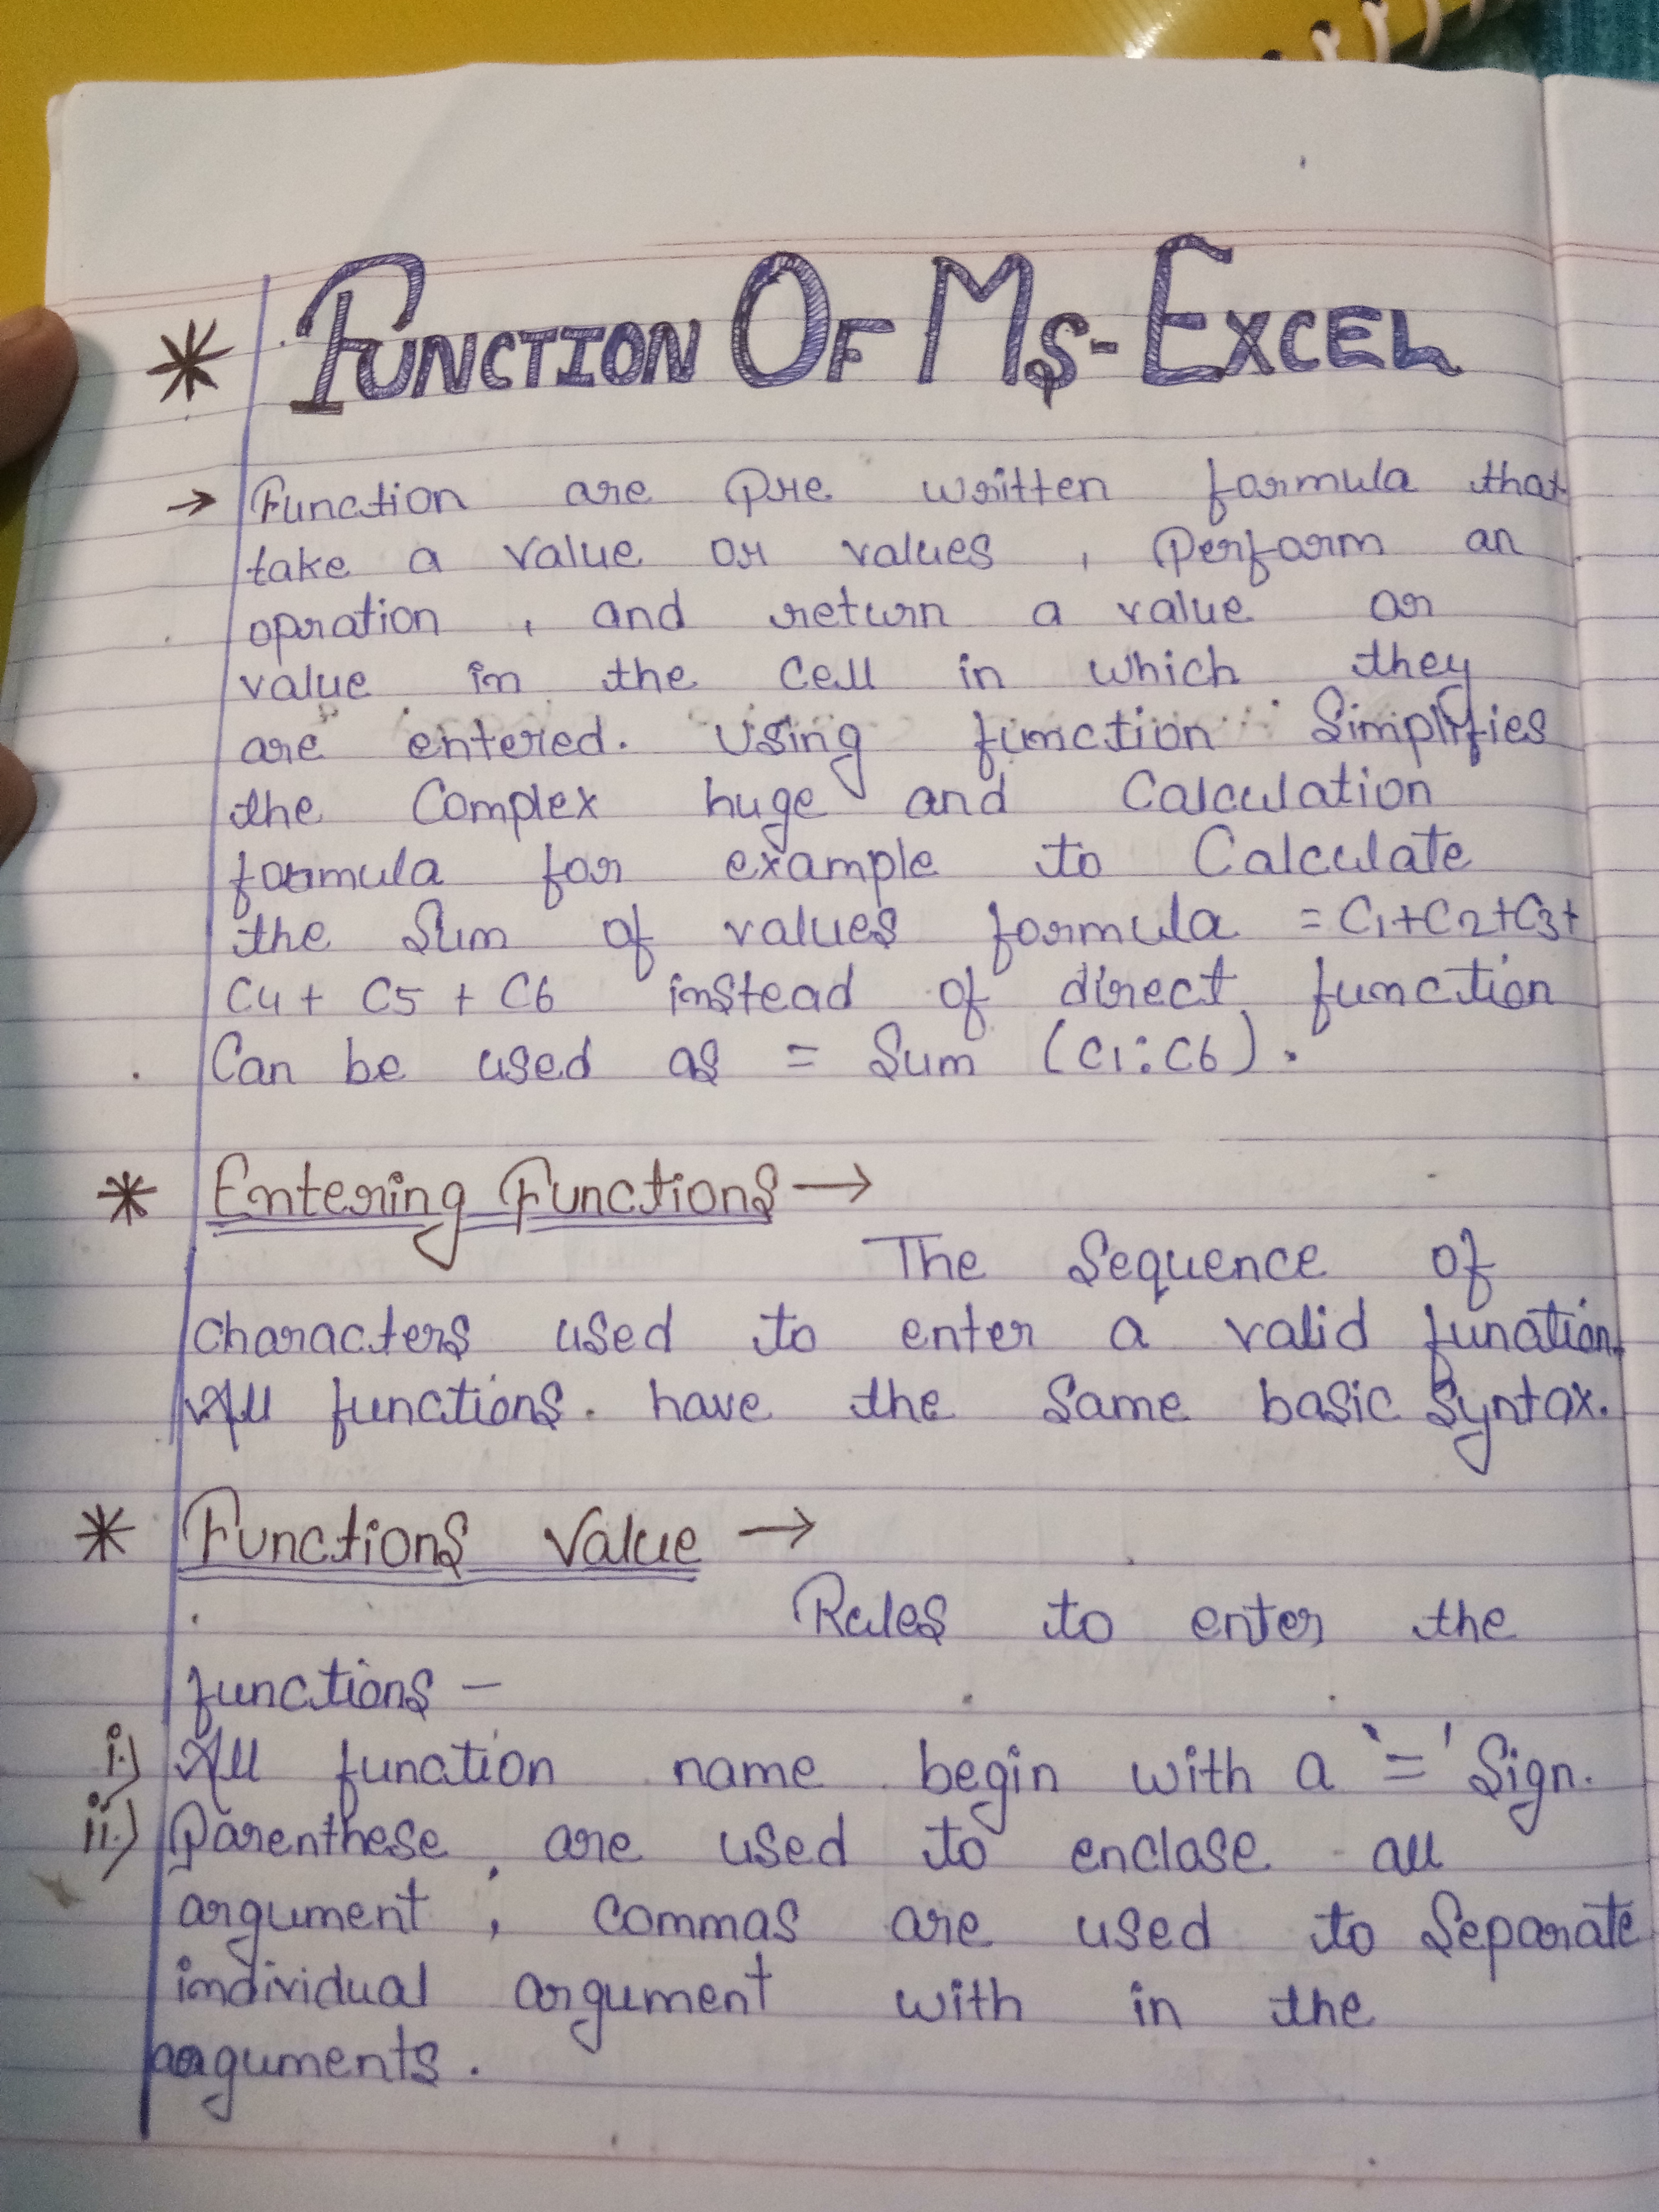 * FUNCTION OF MS-EXCEL
→ Function are pre written formula that
take a value or values , perform an
opration , and return a value or
value in the cell in which they
are entered. Using function Simplifies
the Complex huge and Calculation
formula for example to Calculate
the Sum of values formula = C1+C2+C3+
C4+ C5 + C6 instead of direct function
Can be used as = Sum (C1:C6).
* Entering Functions →
The Sequence of
characters used to enter a valid funation.
All functions. have the Same basic Syntax.
* Functions Value →
Rules to enter the
functions –
i.) All function name begin with a '=' Sign.
ii.) Parenthese are used to enclose all
argument , commas are used to Separate
individual argument with in the
arguments.